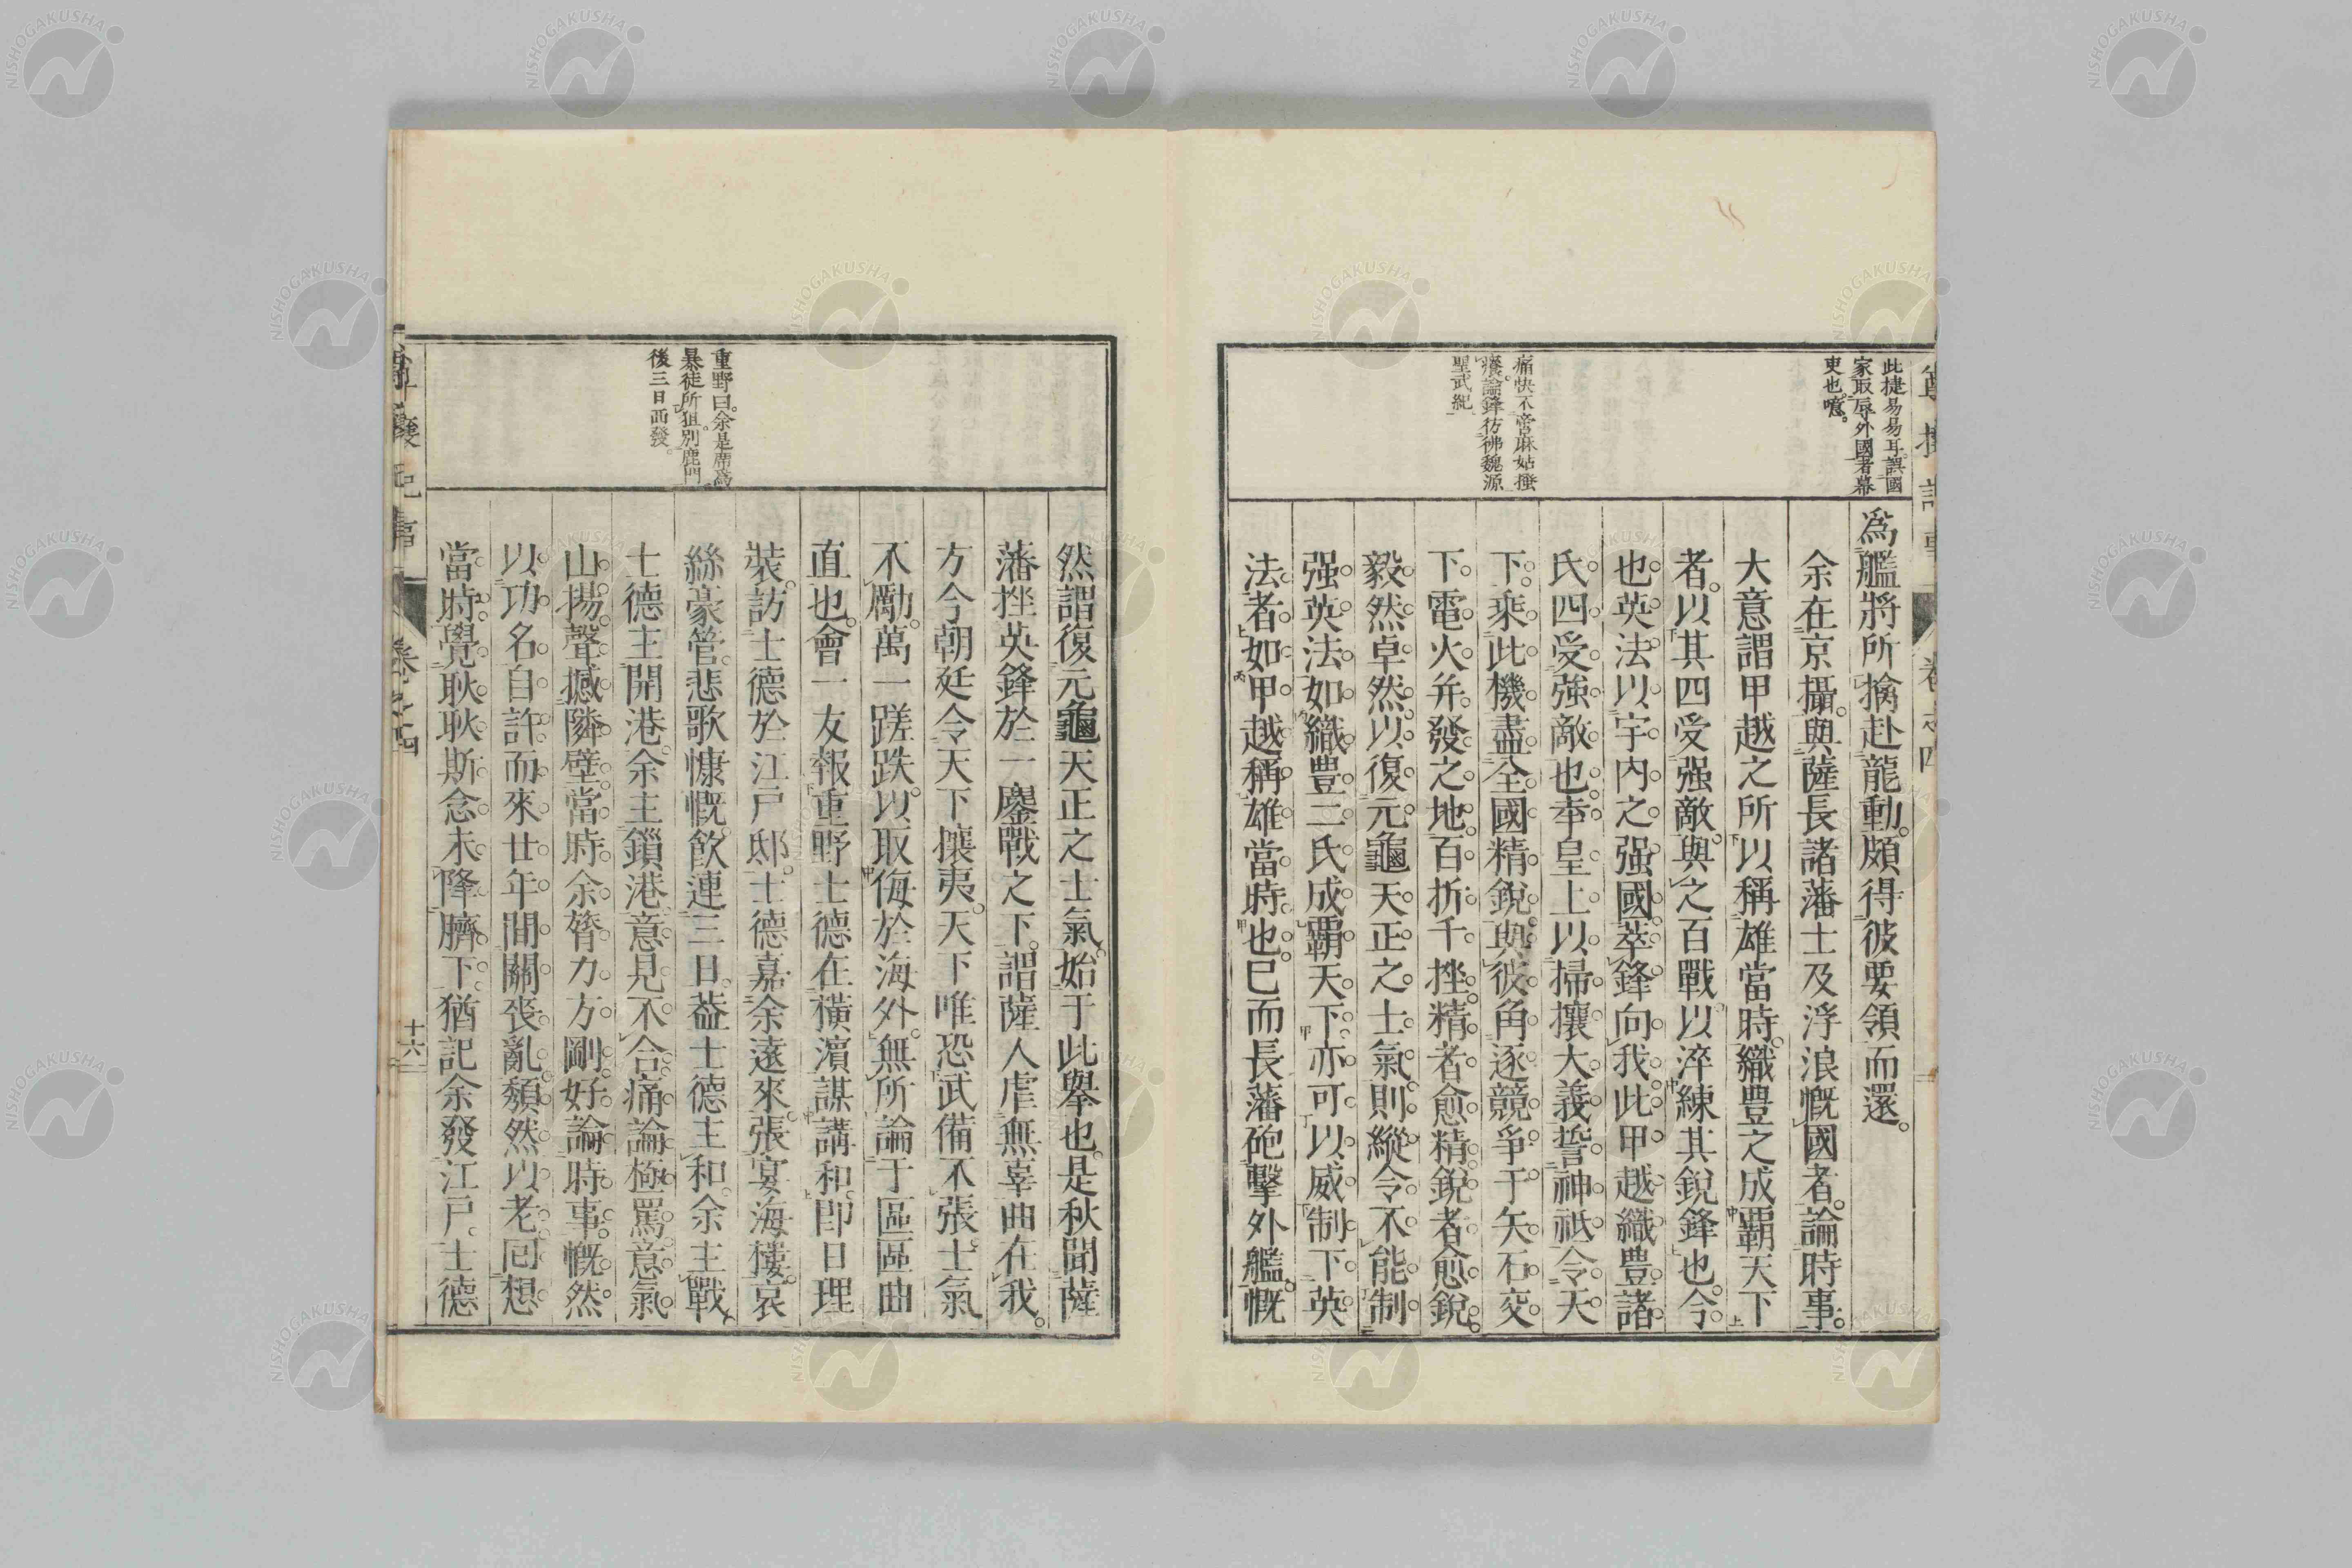 此捷易易耳誤國
家取辱外國者幕
吏也噫。
痛快不啻麻姑搔
癢。論鋒彷彿魏源
聖武紀
爲艦將所擒赴龍動。頗得彼要領而還。
余在京攝。與薩長諸藩士及浮浪慨國者。論時事。
大意謂甲越之所以稱雄當時。織豊之成覇天下
者。以其四受强敵。與之百戰以淬練其鋭鋒也。今
也英法以宇内之强國萃鋒向我此甲越織豊諸
氏四受強敵也。奉皇上以掃攘大義誓神祇令天
下。乘此機盡全國精鋭。與彼角逐競爭于矢石交
下。電火弁發之地。百折千挫。精者愈精鋭者愈鋭。
毅然卓然。以復元龜天正之士氣。則縱令不能制
强英法。如織豊二氏成覇天下。亦可以威制下英
法者。如甲越稱雄當時也。已而長藩砲擊外艦。慨
然謂復元龜天正之士氣。始于此舉也。是秋聞薩
藩挫英鋒於一鏖戰之下。謂薩人虐無辜曲在我。
方今朝廷令天下攘夷。天下唯恐武備不張。士氣
不勵。萬一蹉跌。以取侮於海外。無所論于區區曲
直也。會一友報重野士德在橫濵謀講和。卽日理
裝。訪士德於江戸邸。士德嘉余遠來。張宴海樓。哀
絲豪管。悲歌慷慨。飮連三日。葢士德主和。余主戰。
士德主開港。余主鎖港。意見不合。痛論極罵。意氣
山揚。聲撼隣壁。當時余膂力方剛。好論時事。慨然
以功名自許。而來廿年間關喪亂。頽然以老。囘想
當時。覺耿耿斯念未降臍下。猶記余發江戸。士德
重野曰。余是席爲
暴徒所狙。別鹿門
後三日西發。
尊攘紀事
卷之四
十六
NISHOGAKUSHA